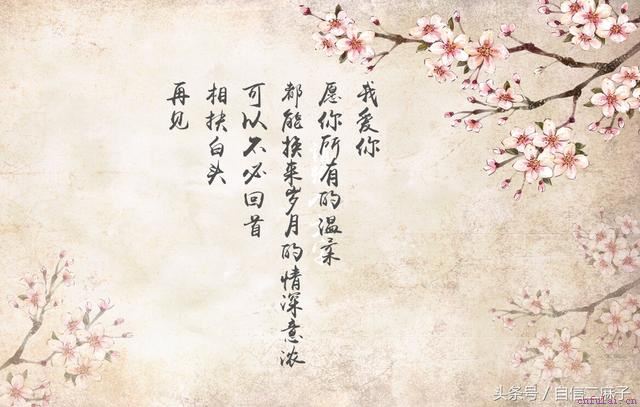 我爱你
愿你所有的温柔
都能换来岁月的情深意浓
可以不必回首
相扶白头
再见
头条号/自信二麻子
cnfulai.cn